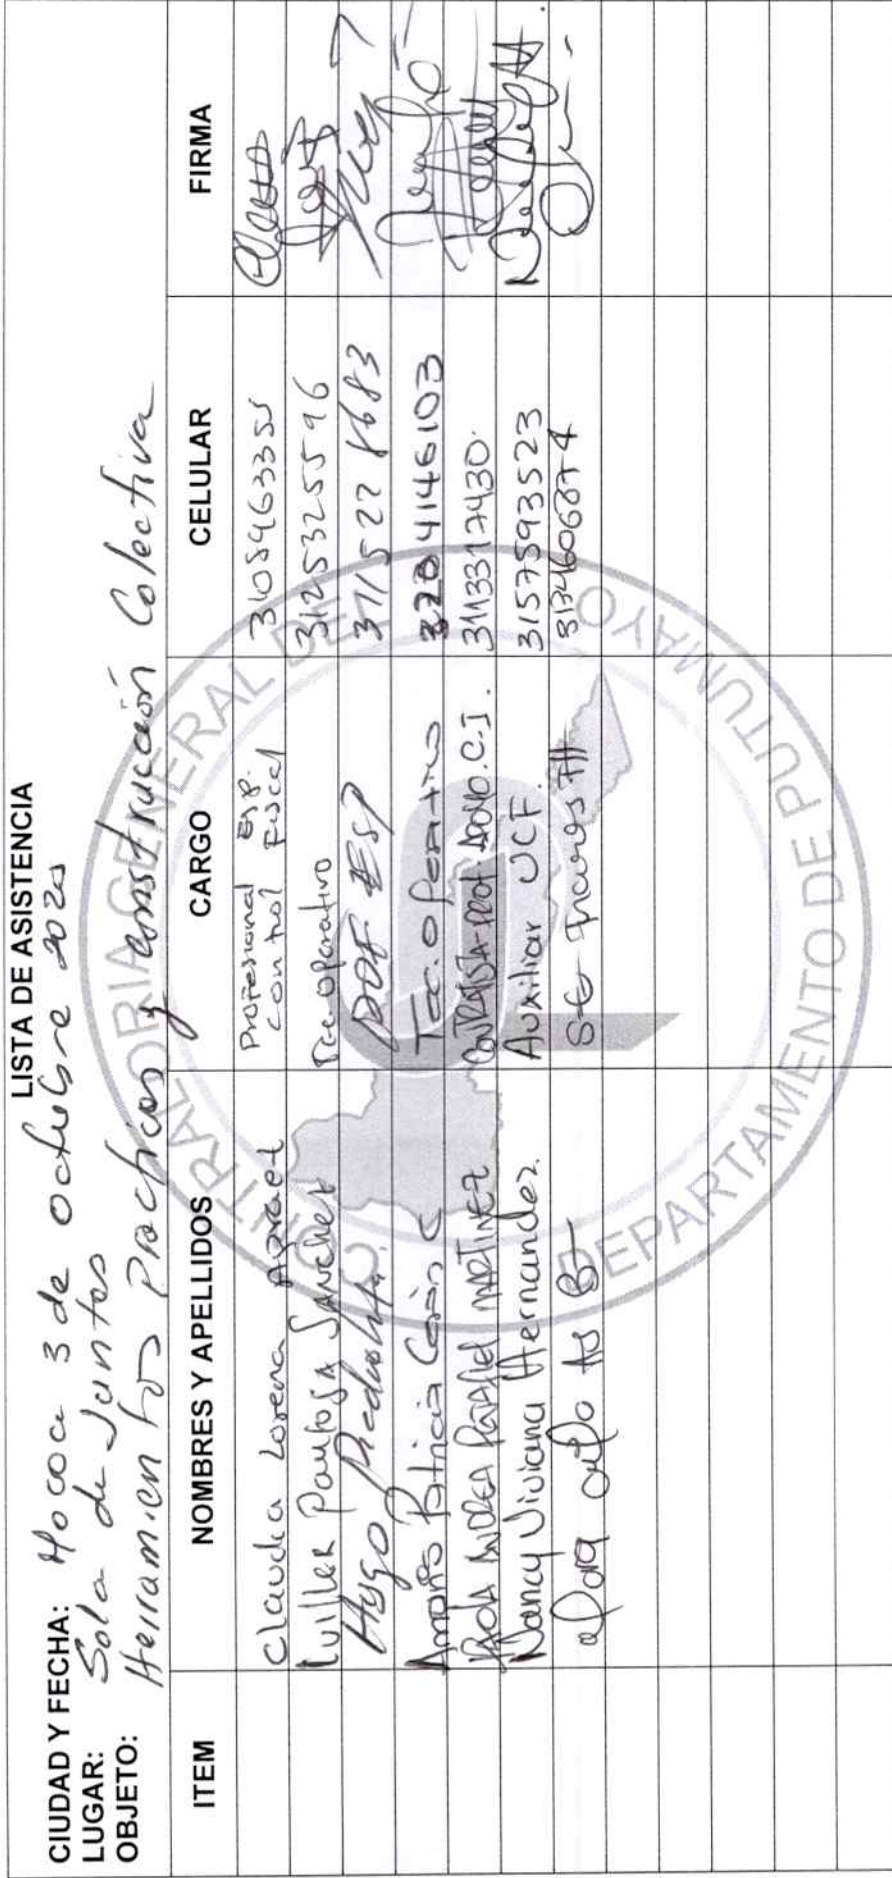 LISTA DE ASISTENCIA
CIUDAD Y FECHA: Mocoa 3 de octubre 2025
LUGAR: Sala de Juntas
OBJETO: Herramientas Practicas y construcción Colectiva
ITEM NOMBRES Y APELLIDOS CARGO CELULAR FIRMA
Claudia Lorena Profesional Esp. control Fiscal 3105463355
Pantoja Sanchez Tec. Operativo 3125325596
Hugo Piedrahita 311522 8683
Patricia C Tec. Operativo 3284146103
PAOLA ANDREA MARTINEZ CONTRATISTA-PROF APOYO. C.I. 3113317430
Nancy Viviana Hernandez. Auxiliar UCF. 3157593523
3134606874
CONTRALORIA GENERAL DEL
DEPARTAMENTO DE PUTUMAYO